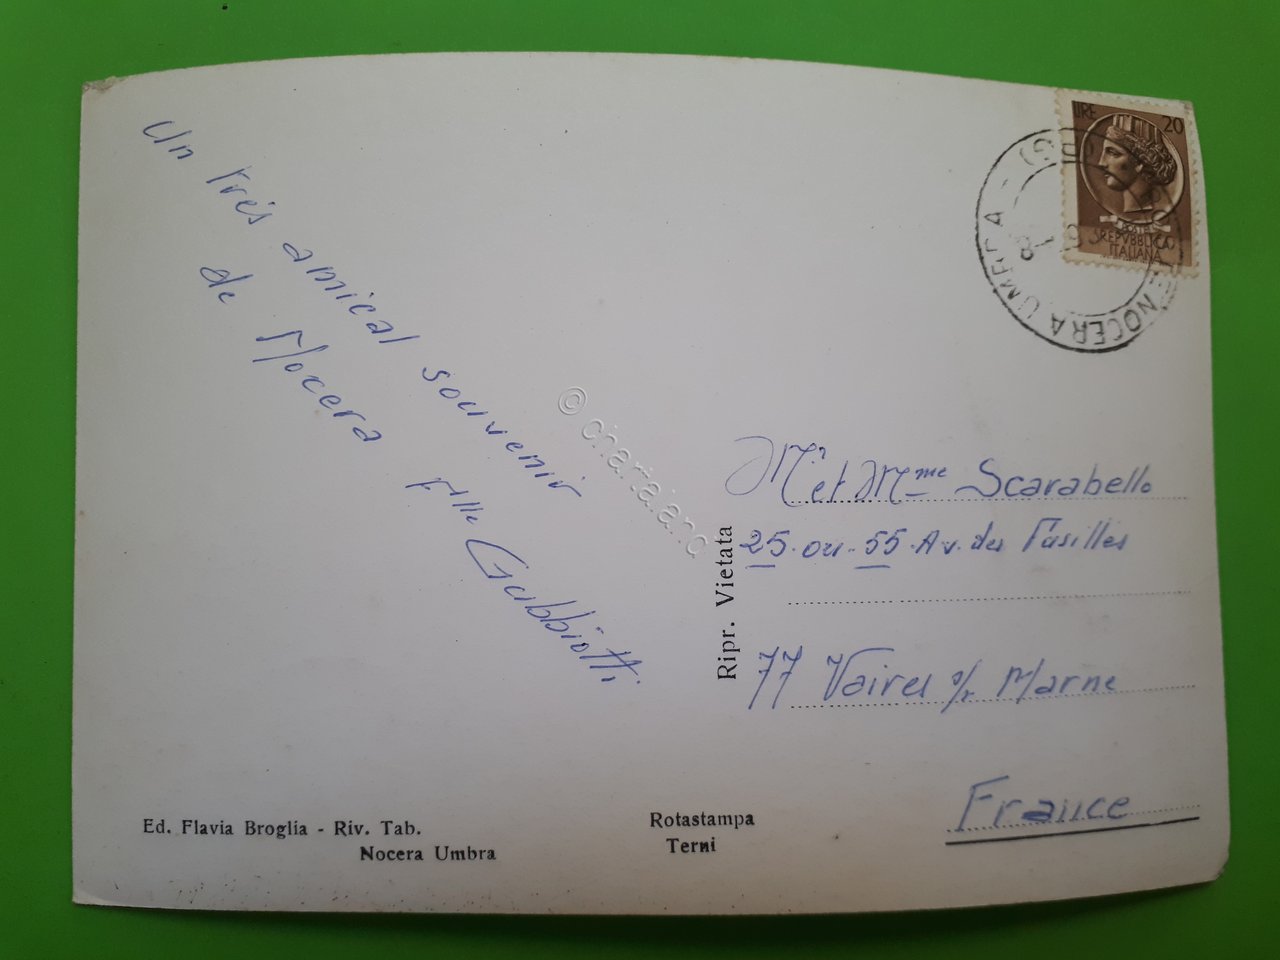 Un très amical souvenir
de Nocera
Flle Gubbiotti
LIRE 20
POSTE
REPVBBLICA
ITALIANA
NOCERA UMBRA
(PG)
© chartaland
Mr et Mme Scarabello
25 ou 55 Av. des Fusillés
77 Vaires s/r Marne
France
Ripr. Vietata
Ed. Flavia Broglia - Riv. Tab.
Nocera Umbra
Rotastampa
Terni